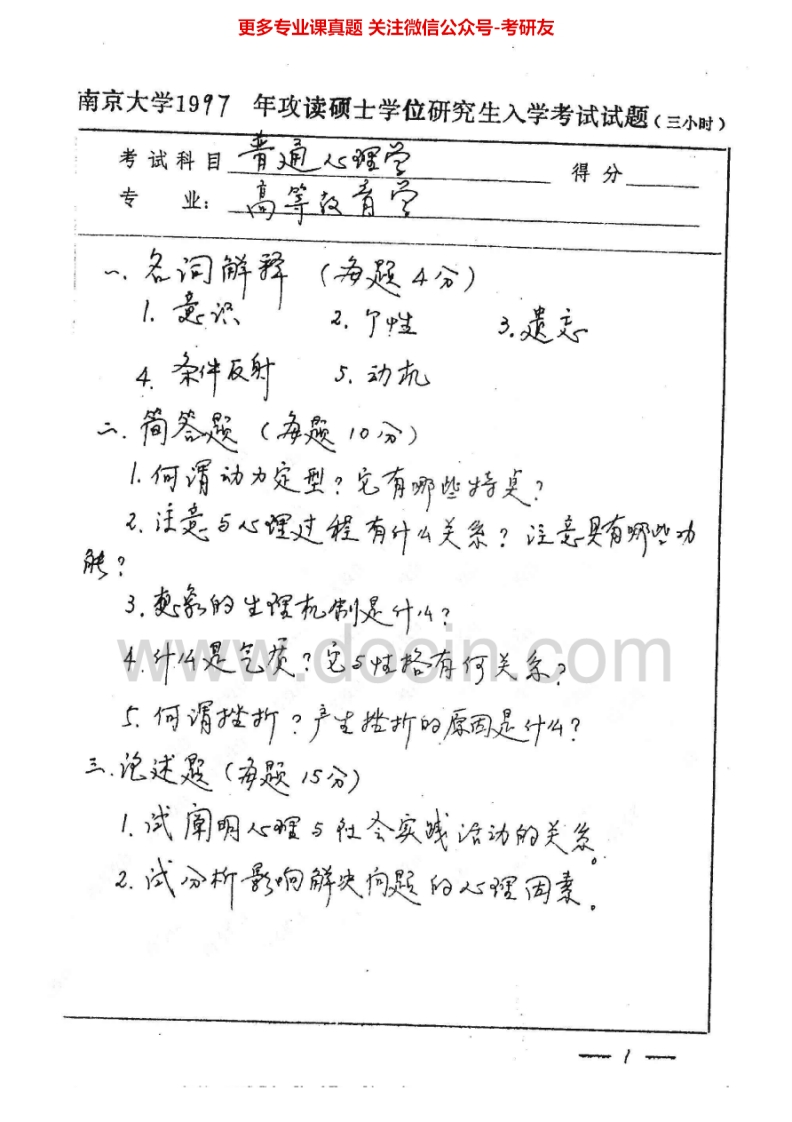 更多专业课真题 关注微信公众号-考研友
南京大学1997 年攻读硕士学位研究生入学考试试题（三小时）
考试科目 普通心理学 得分
专 业： 高等教育学
一、名词解释（每题4分）
1. 意识 2. 个性 3. 遗忘
4. 条件反射 5. 动机
二、简答题（每题10分）
1. 何谓动力定型？它有哪些特点？
2. 注意与心理过程有什么关系？注意具有哪些功
能？
3. 想象的生理机制是什么？
www.docin.com
4. 什么是气质？它与性格有何关系？
5. 何谓挫折？产生挫折的原因是什么？
三、论述题（每题15分）
1. 试阐明心理与社会实践活动的关系。
2. 试分析影响解决问题的心理因素。
— 1 —